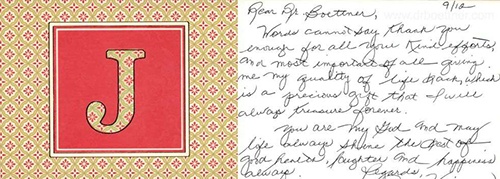 J
9/12
Dear Dr Boettner,
Words cannot say thank you
enough for all your kind efforts,
and most important of all giving
me my quality of life back, which
is a precious gift that I will
always treasure forever.
You are my God and may
life always shine the best of
good health, laughter and happiness
always. Regards,